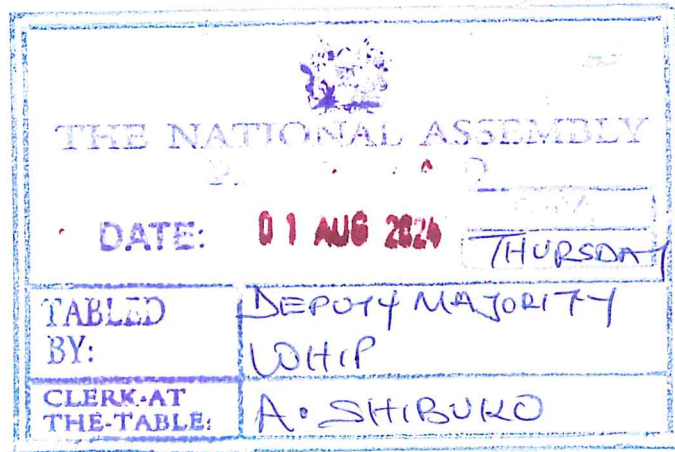 THE NATIONAL ASSEMBLY
DATE: 01 AUG 2024
THURSDAY
TABLED BY:
DEPUTY MAJORITY WHIP
CLERK-AT THE-TABLE:
A. SHIBUKO